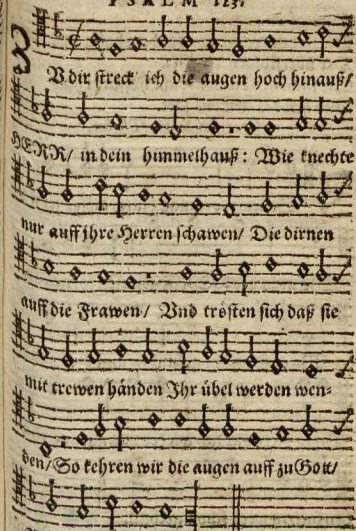 PSALM 123.
Zu dir streck' ich die augen hoch hinauß/
HERR/ in dein himmelhauß: Wie knechte
nur auff jhre Herren schawen/ Die dirnen
auff die Frawen/ Vnd trösten sich daß sie
mit trewen händen Jhr übel werden wen=
den/ So kehren wir die augen auff zu Gott/